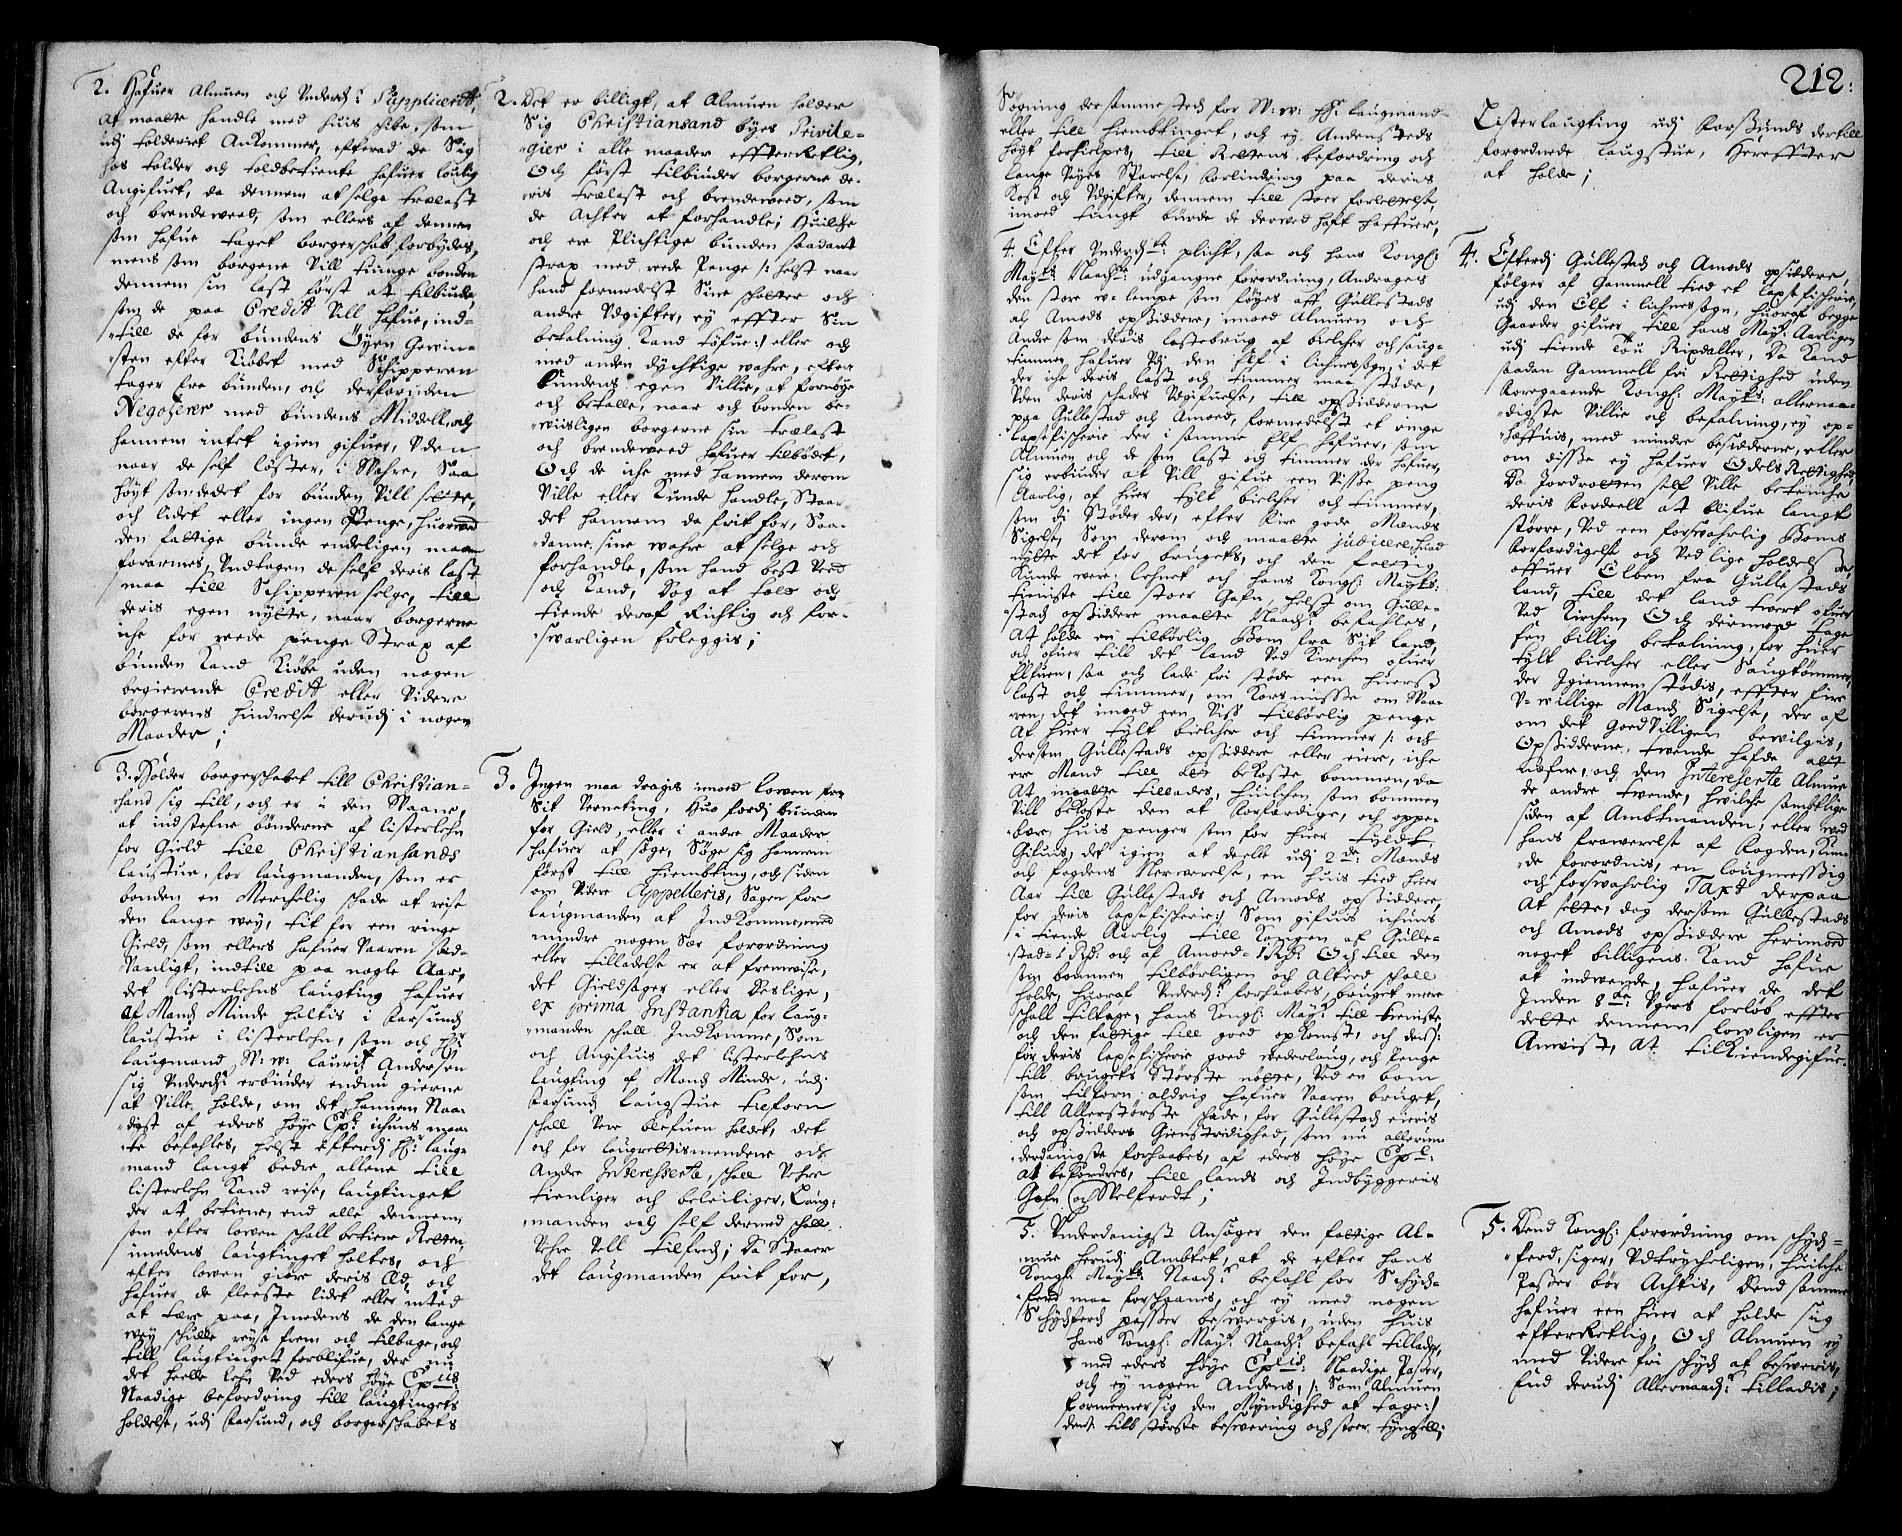 2. Hafuer Almuen och Underd: Suppliceret,
At maatte handle med huis skibe, som
udj tolderiet Ankommer, effterad de Sig
hos tolder och toldbetiente hafuer louligen
Angifuet, da dennem at selge trælast
och brendeveed, som ellers af dennem
som hafue taget borgerschab forbydes,
mens som borgerne Vill tuinge bonden
dennem sin last først at tilbiude,
som de paa Credit Vill hafue, ind-
till de for bundens Øyen
sten efter Kiøbet med Schipperen
tager fra bunden, och derforuden
Negotierer med bundens Middell, och
hannem intet igien gifuer, Uden
naar de self løster, i Wahre, Saa
høyt som de det for bunden Vill sette,
och lidet eller ingen Penge, huorved
den fattige bunde endeligen maa
forarmes, Undtagen de self deris last
maa till Schipperen selge, till
deris egen nytte, naar borgerne
iche for reede penge Strax af
bunden Kand Kiøbe uden nogen
begierende Credit eller Videre
borgerens hindrelse derudj i nogen
Maader;
3. Holder borgerschabet till Christian-
sand sig till, och er i den Vaane,
at indstefne bønderne af listerlehn
for Gield till Christiansands
laustue, for laugmanden, som er
bonden en Merchelig schade at reise
den lange vey, tit for een ringe
Gield, som ellers hafuer Vaaren sæd-
vanligt, indtill paa nogle Aar,
det listerlehns laugting hafuer
af Mands Minde holtis i farsund
laustue i listerlehn, som och Hr
laugmand W: w: lauritz Andersen
sig Underd: erbiuder endnu gierne
at Ville holde, om det hannem Naa-
digst af eders høye Exc: ichuns maa-
te befahles, helst efterdj Hr: laug-
mand langt bedre allene till
listerlehn Kand reise, laugtinget
der at betiene, end alle dennem,
som efter lowen schall betiene Retten,
imedens laugtinget holtes, och
efter lowen giøre deris Æd, och
hafuer de fleeste lidet eller inted
at tære paa, Imedens de den lange
wey schulle reyse frem och tilbage, och
till laugtinget forblifue, der nu
det heelle lehn Ved eders høye Exc:
Naadige befordring till laugtingets
holdelse, udj farsund, och borgerschabets
2. Det er billigt, at Almuen holder
Sig Christiansand byes Privile-
gier i alle maader effterretlig,
Och først tilbiuder borgerne de-
ris trælast och brendeveed, som
de Achter at forhandle; Huilche
och ere Plichtige bunden saadant
strax med rede Penge /: helst naar
hand formedelst Sine schatter och
andre Udgifter, ey effter Sin
betalning Kand tøfue :/ eller och
med anden dychtige wahre, efter
bundens egen Villie, at fornøye
och betalle, naar och bonden be-
wiisligen borgerne sin trælast
och brendeveed hafuer tilbødet,
Och de iche med hannem derom
Ville eller Kunde handle, Staar
det hannem da frit for, Saa-
danne sine wahre at selge och
forhandle, som hand best Ved
och Kand, Dog at told och
tiende deraf Richtig och for-
swarligen erleggis;
3. Ingen maa dragis imod lowen fra
Sit Verneting, Huo fordj bunden
for Gield, eller i andre Maader
hafuer at søge, Søge sig hannem
først till Hiemting, och siden
om Videre Appelleris, Sagen for
laugmanden at Indkomme, med
mindre nogen Sær forordning
eller tilladelse er at fremwise,
det Gieldsager eller Deslige,
ex prima Instantia for laug-
manden schall Indkomme, Som
och Angifuis det listerlehns
laugting af Mands Minde, udj
farsund laugstue tilforn
schall Vere blefuen holdet, det
och for laugrettismendene och
Andre Interesserte, schall Vehre
tienliger och beleiliger, Laug-
manden och self dermed schall
Vehre Vell tilfreds; Da Staaer
det laugmanden frit for,
Søgning dersammesteds for W: w: Hr: laugmand
eller till hiembtinget, och ey Andensteds
høyt forhielpes, till Rettens befordring och
lange Veyes Sparelse, forlindring paa deris
Kost och Udgifter, dennem till stoer forlettelse,
imoed tungt burde de derved haft haffuer,
4. Efter Underd:te plicht, saa och hans Kongl:
Mayts: Naad: udgangne forordning, Andrages
den store u-lempe som føyes aff Gullestads
och Amods opsiddere, imoed Almuen och
Andre som deris lastebrug af bielcher och saug-
timmer hafuer udj den Elf i lichnesogn, i det
der iche deris last och timmer maa støde,
Uden deris schades Udgifuelse, till opsidderne
paa Gullestad och Amoed, formedelst et ringe
laxefischerie der i samme Elf hafuer, som
Almuen och de som last och timmer der hafuer,
sig erbiuder at Vill gifue een Visse peng
Aarlig, af huer tylt bielcher och timmer,
som di Støder der, efter fire gode Mænds
Sigelse, Som derom och maatte judicere, huad
nytte det for brugets, och den fattig
Kunde were lehnet och hans Kongl: Mayts:
tieniste till stoer Gafn, helst om Gulle-
stad opsiddere maatte Naad: befahles,
At holde en tilbørlig Bom fra Sit land,
och ofuer till det land Ved Kirchen ofuer
Elfuen, saa och lade fri støde een huers
last och timmer, om Korsmisse om Vaa-
ren, det imoed een Viss tilbørlig penge
Af huer tylt bielcher och timmer /: och
dersom Gullestads opsiddere eller eiere, iche
ere Mand till det bekoste bommen, da
At maatte tillades, huilchen som bommen
Vill bekoste den at forfærdige, och oppe-
bære, huis penger som for huer tyldt
Gifuis, det igien at deelle udj 2de: Mænds
och fogdens Nerwerelse, en huis tied huer
Aar till Gullestads och Amods opsiddere,
for deris laxefischerie :/ Som gifuis ichuns
i tiende Aarlig till Kongen af Gulle-
stad 1 Rdr: och af Amoed 1 Rdr: Och till den
som bommen tilbørligen och Altied schall
holde, huoraf Underd: forhaabes, bruget mere
schall tillage, hans Kongl: May: till tieniste
och den fattige till goed opkomst, och deris:
før deris laxefischerie goed wederlaug, och Penge
till brugets Største nøtte, Ved en bom
som tilforn aldrig hafuer Vaaren bruget,
till Allerstørste schade, for Gullestads eieris
och opsidders Gienstridighed, som nu allerun-
derdanigste forhaabes, af eders høye Exc:
at befordres, till lands och Indbyggeris
Gafn och Velferdt;
5. Underdanigst Ansøger den fattige Al-
mue herudj Ambtet, at de efter hans
Kongl: Mayts: Naad: befahl for Schyds-
ferd maa forschaanes, och ey med nogen
Schydtferd passer beswergis, uden huis
hans Kongl: May: Naad: befahl tillader,
med eders høye Exc: Naadige Passer,
och ey nogen Andens, /: Som Almuen
formeener sig den Myndighed at tage :/
dem till største beswering och stoer tyngsell;
212:
Listerlaugting udj farsunds dertill
forordnede laugstue, herefter
at holde;
4. Efterdj Gullestad och Amods opsiddere
følger af Gammell tied et laxefischerie,
udj den Elf i lichnesogn, huoraf begge
Gaarder gifuer till hans May: Aarligen
udj tiende tou Rixdaller, Da Kand
saadan Gammell fri Rettighed uden
foregaaende Kongl: Mayts: allernaa-
digste Villie och befalning, ey op-
hæffuis, med mindre besidderne, eller
om disse ey hafuer Odels Rettighed,
Da Jordrotten self Ville betenche
deris fordeell at blifue langt
større, Ved een forswahrlig Boms
forfærdigelse och Ved lige holdelse,
offuer Elben fra Gullestads
land, till det land twert ofuer
Ved Kirchen, Och dermed tage
en billig betalning, for huer
tylt bielcher eller Saugtømmer,
der Igiennem stødis, effter fire
U-willige Mænds Sigelse, der af
om det goedVilligen bewilgis,
Opsidderne, twende hafde at
nefne, och den Interesserte Almue
de andre twende, hwilche samtellige
siden af Ambtmanden, eller Ved
hans frawerelse af fogden, Kun-
de forordnis, en laugmessig
och forswahrlig Taxt derpaa
At sette, dog dersom Gullestads
och Amods opsiddere herimoed
noget billigens Kand hafue
at indwende, hafuer de det
Inden 8te: Ugers forløb effter
dette dennem lowligen er
Anwist, At tilkiendegifue.
5. Dend Kongl: forordning om schyds-
ferd, siger, Udtrycheligen, huilche
Passer bør Achtis, Dend samme
hafuer een huer at holde sig
efterretlig, Och Almuen ey
med Videre fri schyds at besweris,
End derudj Allernaad: tilladis;